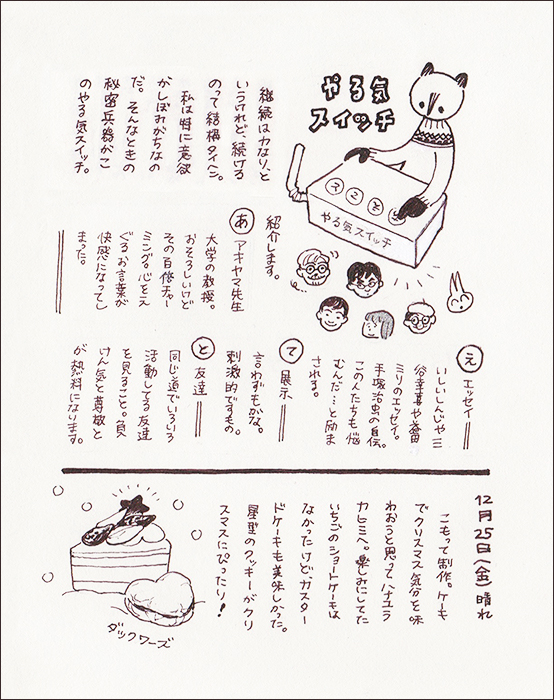 やる気
スイッチ
継続は力なり、と
いうけれど、続ける
のって結構タイヘン。
私は特に意欲
がしぼみがちなの
だ。そんなときの
秘密兵器がこ
のやる気スイッチ。
やる気スイッチ
紹介します。
あ アキヤマ先生
大学の教授。
おそろしいけど
その百倍チャー
ミング。心をえ
ぐるお言葉が
快感になってし
まった。
え エッセイ
いしいしんじや三
谷幸喜や益田
ミリのエッセイ。
手塚治虫の自伝。
この人たちも悩
むんだ…と励ま
される。
て 展示
言わずもがな。
刺激的ですもの。
と 友達
同じ道でいろいろ
活動してる友達
を見ること。負
けん気と尊敬と
が熱料になります。
12月25日(金)晴れ
こもって制作。ケーキ
でクリスマス気分を味
わおうと思ってハナユラ
カヒミへ。楽しみにしてた
いちごのショートケーキは
なかったけどカスター
ドケーキも美味しかった。
星型のクッキーがクリ
スマスにぴったり!
ダックワーズ